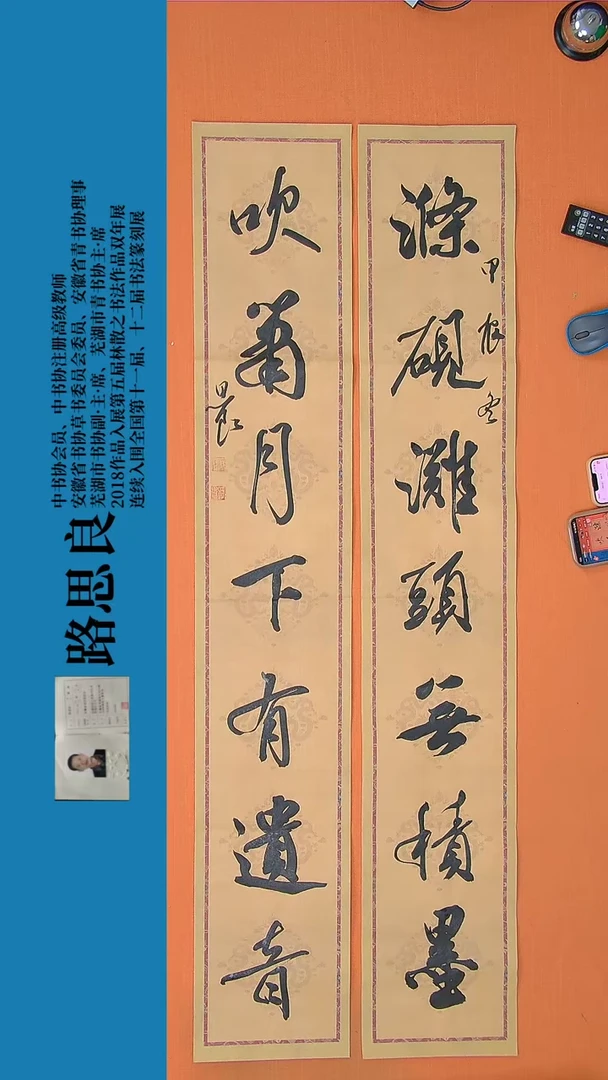 滌硯灘頭無積墨
甲辰冬
吹簫月下有遺音
路思良
中书协会员、中书协注册高级教师
安徽省书协草书委员会委员、安徽省青书协理事
芜湖市书协副·主·席、芜湖市青书协主·席
2018作品入展第五届林散之书法作品双年展
连续入围全国第十一届、十二届书法篆刻展